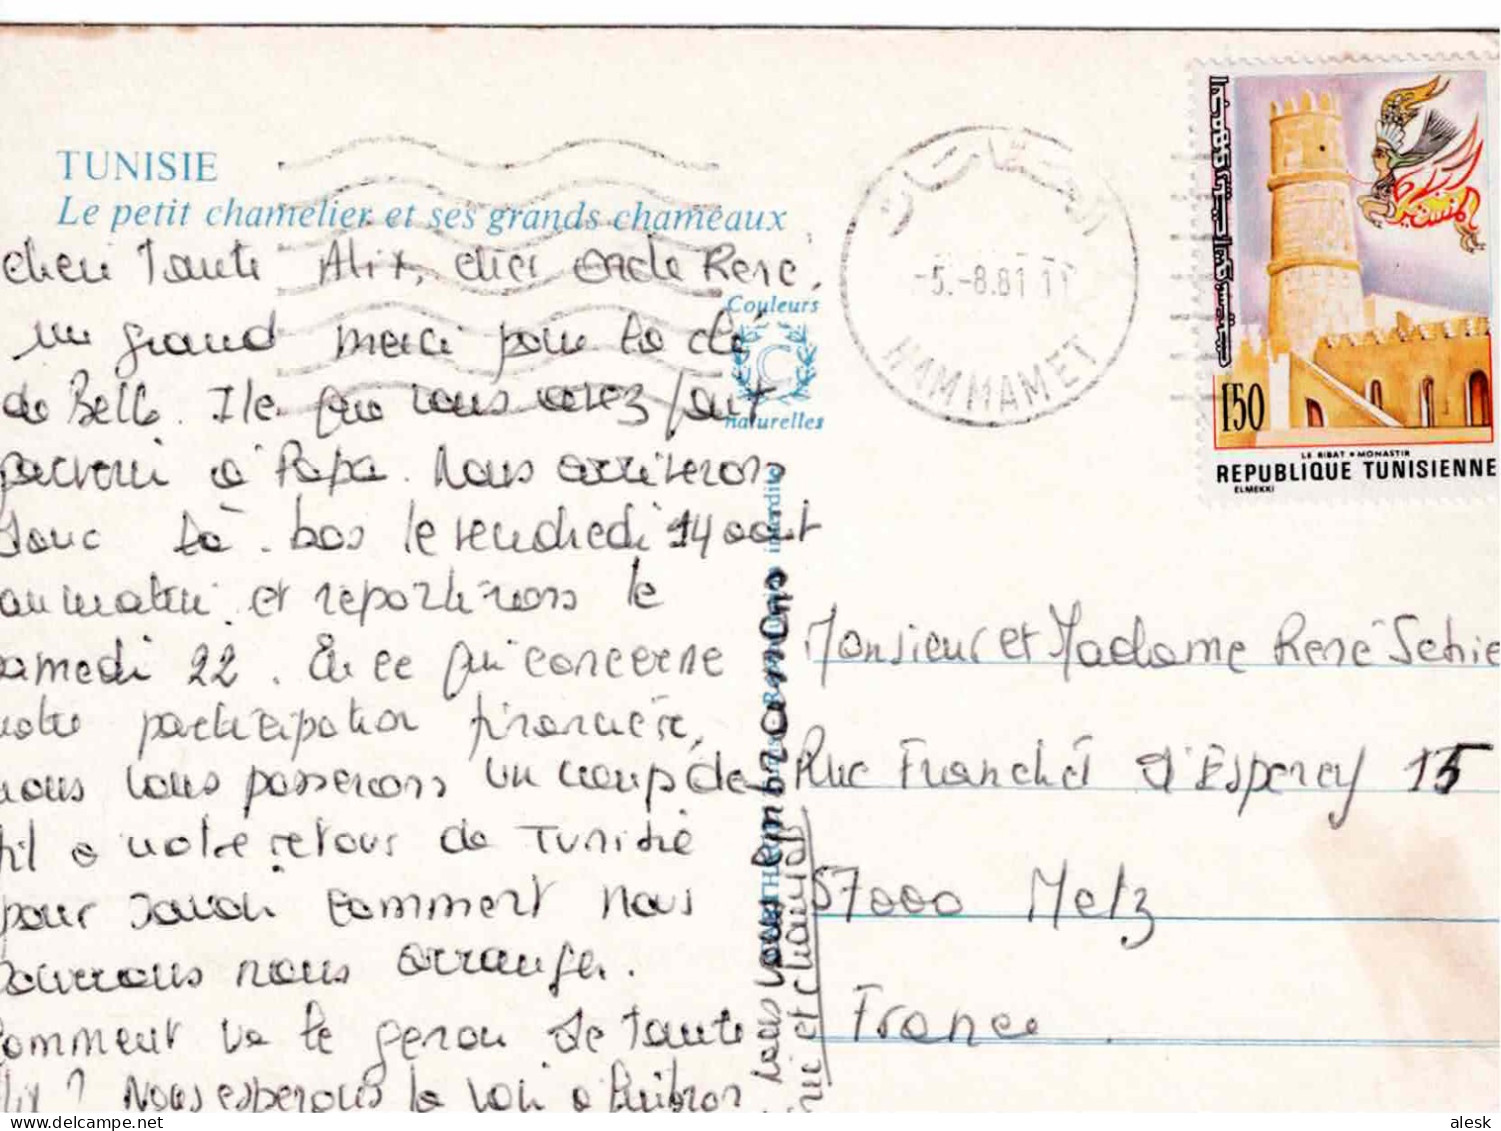 TUNISIE
Le petit chamelier et ses grands chameaux
cheri Tante Alix, cher Oncle René,
un grand merci pour la clé
de Belle. Ile que vous avez fait
parvenir à Papa. Nous arriverons
donc là-bas le vendredi 14 août
au matin et repartirons le
samedi 22. En ce qui concerne
notre participation financière,
nous vous passerons un coup de
fil à notre retour de Tunisie
pour savoir comment nous
pourrons nous arranger.
Comment va le genou de Tante
Alix ? Nous espérons la voir à Quiberon
nous vous embrassons
et chantal
Couleurs
naturelles
interdite
الحمامات
-5.-8.81 11
HAMMAMET
المنستير
150
LE RIBAT • MONASTIR
REPUBLIQUE TUNISIENNE
ELMEKKI
Monsieur et Madame René Schie
Rue Franchet d'Esperey 15
57000 Metz
France
alesk